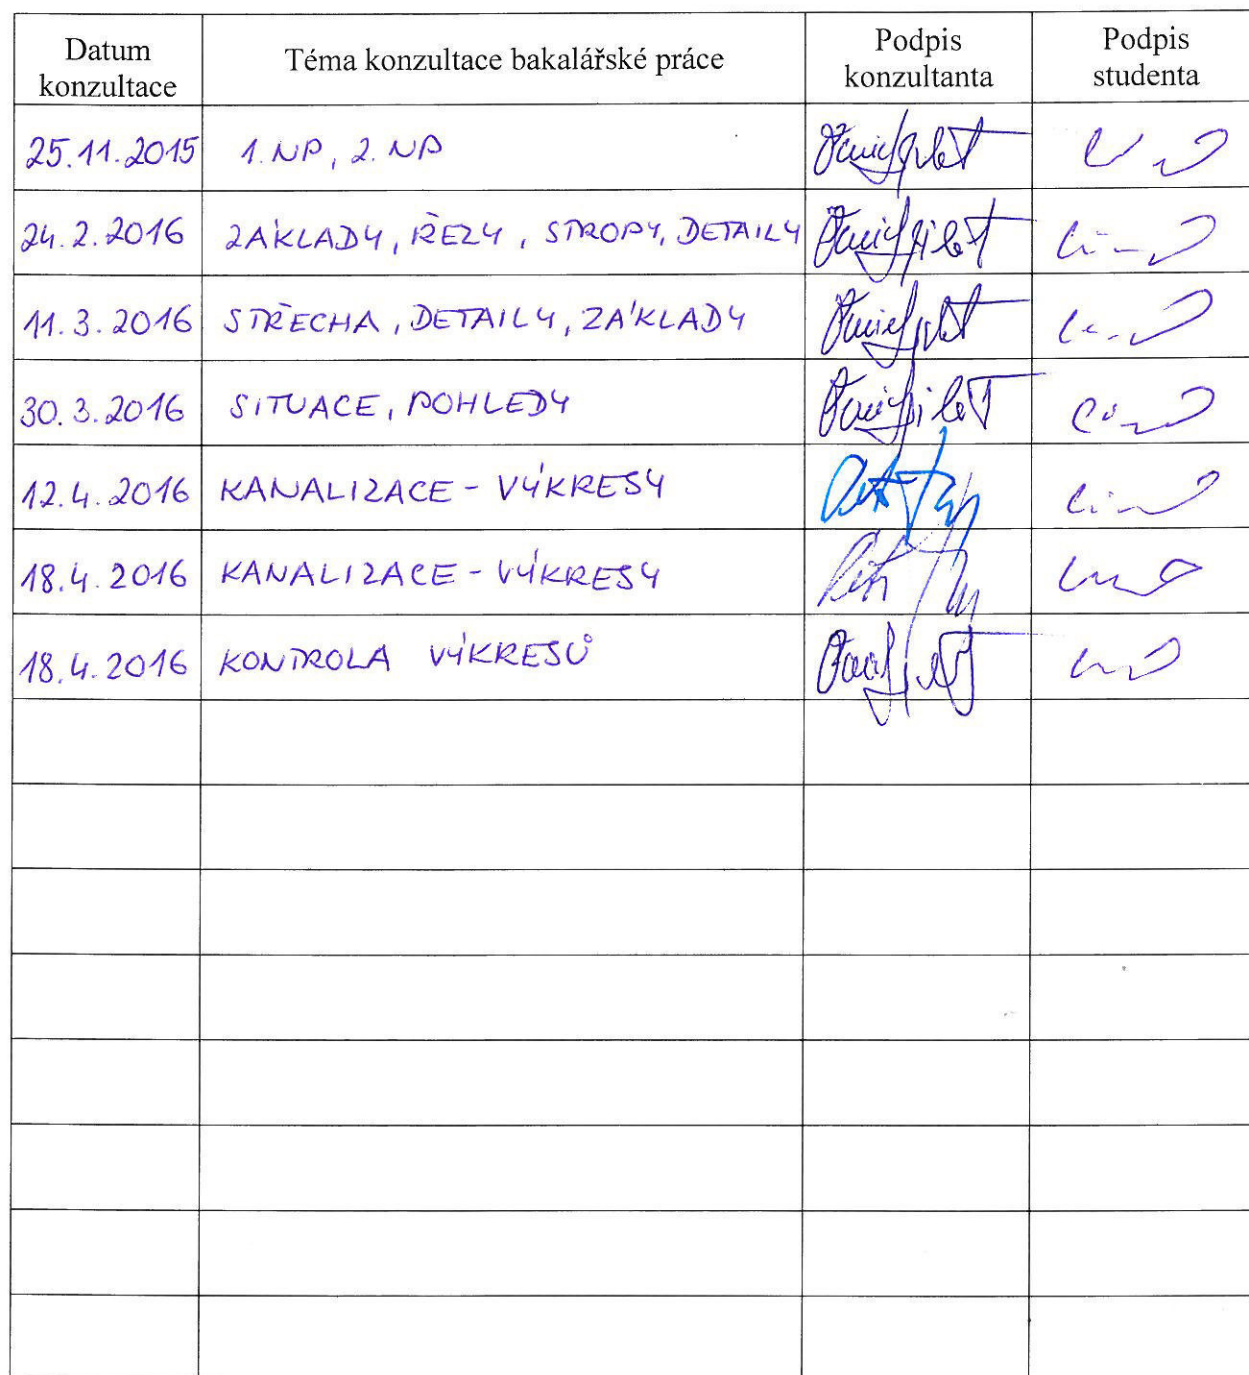 Datum konzultace Téma konzultace bakalářské práce Podpis konzultanta Podpis studenta
25.11.2015 1.NP, 2.NP
24.2.2016 ZÁKLADY, ŘEZY, STROPY, DETAILY
11.3.2016 STŘECHA, DETAILY, ZÁKLADY
30.3.2016 SITUACE, POHLEDY
12.4.2016 KANALIZACE - VÝKRESY
18.4.2016 KANALIZACE - VÝKRESY
18.4.2016 KONTROLA VÝKRESŮ